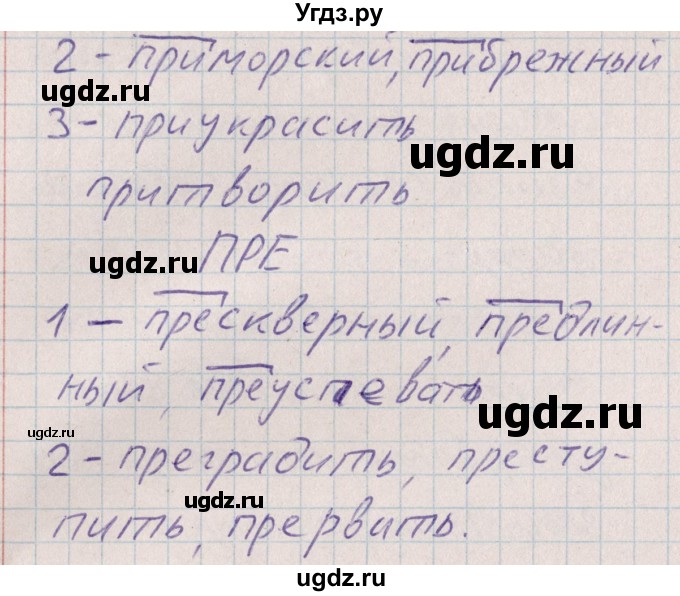 Угдз.ру
2 - приморский, прибрежный
ugdz.ru
3 - приукрасить
ugdz.ru
притворить
ugdz.ru
ПРЕ
1 - прескверный, предлин-
ный, преуспевать
ugdz.ru
ugdz.ru
2 - преградить, престу-
ugdz.ru
пить, прервить.
ugdz.ru